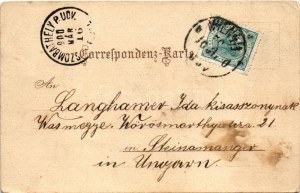 SZOMBATHELY P. UDV.
900
MAR
16
Correspondenz-Karte
An
Langhamer Ida kisasszonynak
Vasmegye Vörösmarthy utca 21
in Steinamanger
in Ungarn